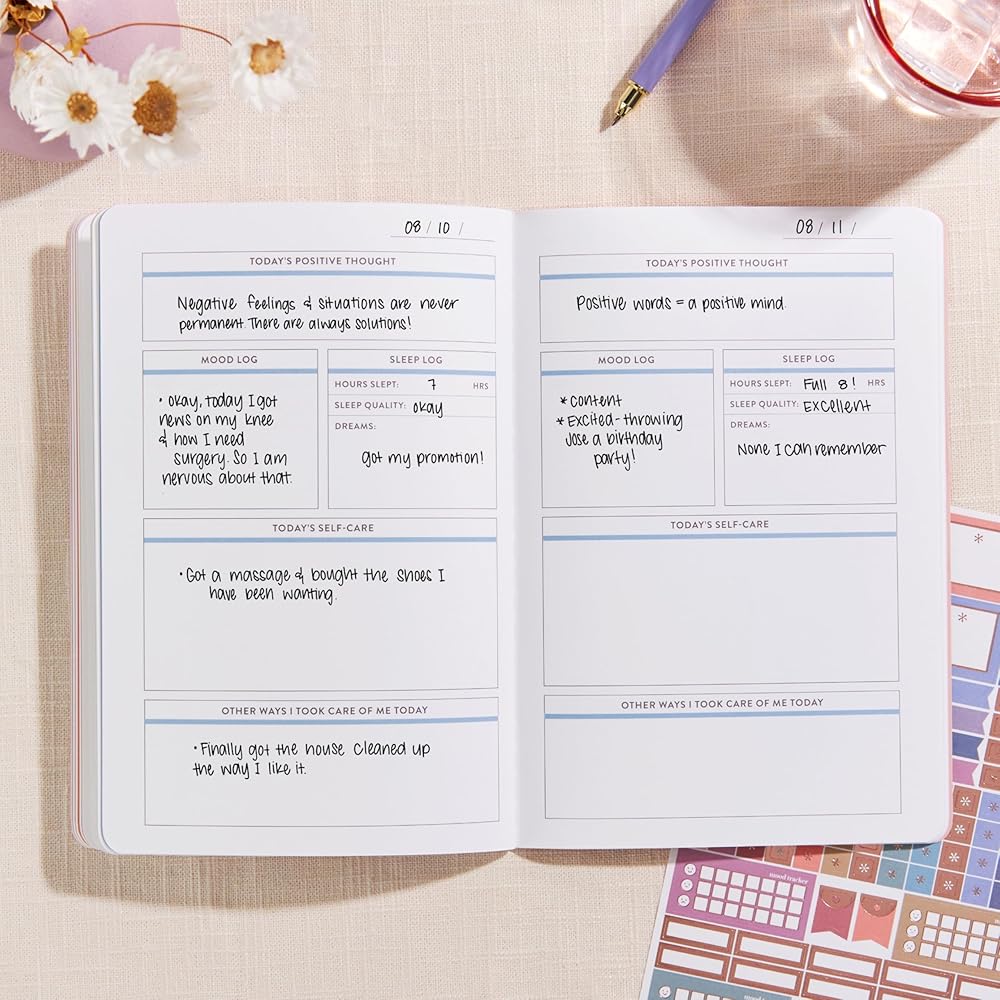 08 / 10 /
TODAY'S POSITIVE THOUGHT
Negative feelings & situations are never
permanent. There are always solutions!
MOOD LOG
• okay, today I got
news on my knee
& how I need
surgery. So I am
nervous about that.
SLEEP LOG
HOURS SLEPT: 7 HRS
SLEEP QUALITY: okay
DREAMS:
Got my promotion!
TODAY'S SELF-CARE
• Got a massage & bought the shoes I
have been wanting.
OTHER WAYS I TOOK CARE OF ME TODAY
• Finally got the house cleaned up
the way I like it.
08 / 11 /
TODAY'S POSITIVE THOUGHT
Positive words = a positive mind.
MOOD LOG
* content
* Excited - throwing
Jose a birthday
party!
SLEEP LOG
HOURS SLEPT: Full 8! HRS
SLEEP QUALITY: EXCELLENT
DREAMS:
None I can remember
TODAY'S SELF-CARE
OTHER WAYS I TOOK CARE OF ME TODAY
mood tracker
mood tracker